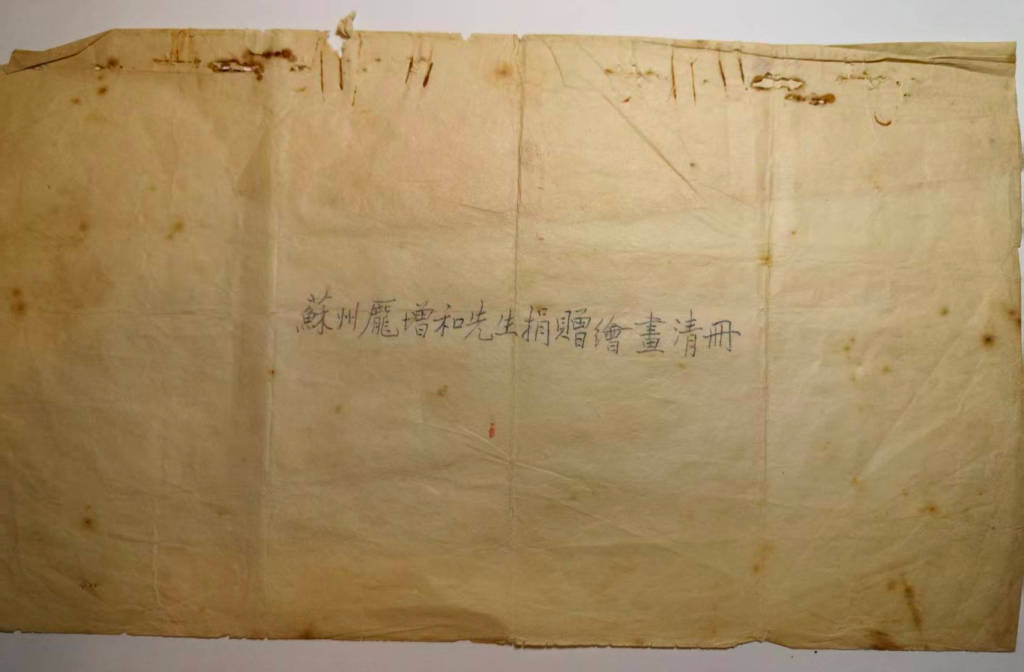 蘇州龐增和先生捐贈繪畫清冊